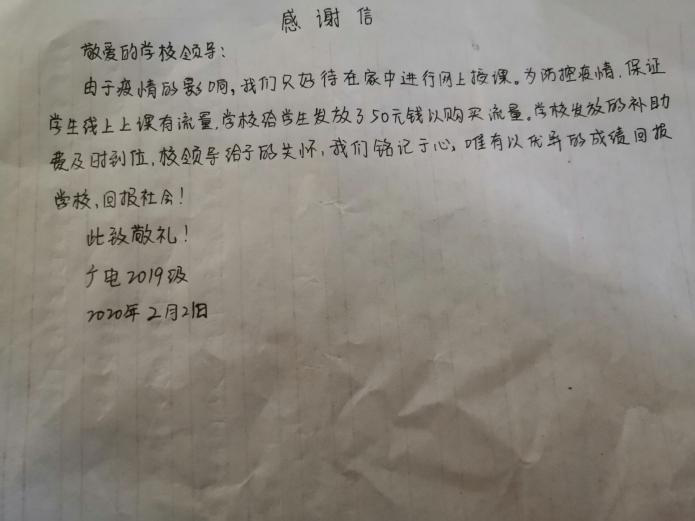 感谢信
敬爱的学校领导：
由于疫情的影响，我们只好待在家中进行网上授课。为防控疫情，保证
学生线上上课有流量，学校给学生发放了50元钱以购买流量。学校发放的补助
费及时到位，校领导给予的关怀，我们铭记于心，唯有以优异的成绩回报
学校，回报社会！
此致敬礼！
广电2019级
2020年2月21日